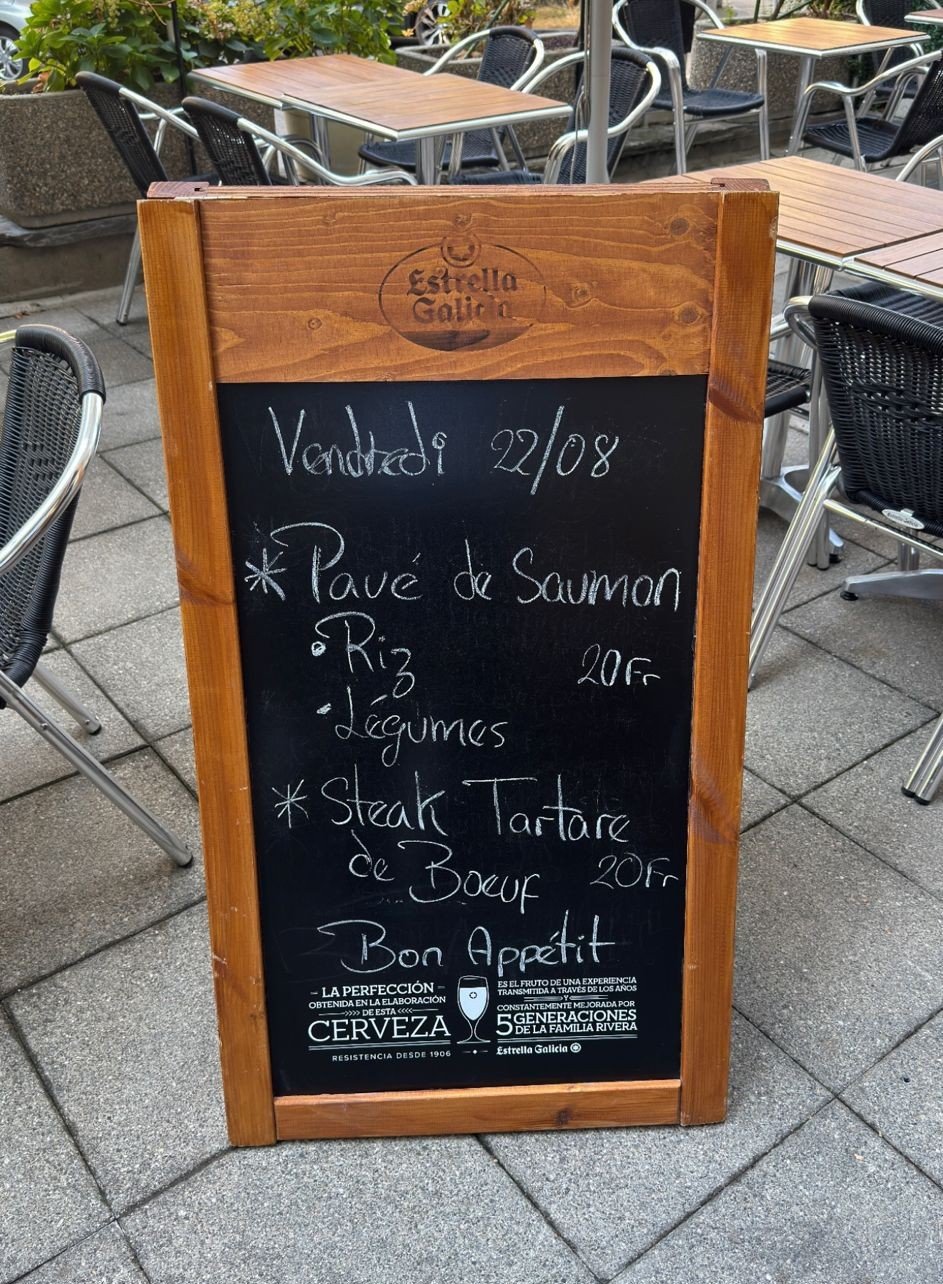 Estrella
Galicia
Vendredi 22/08
* Pavé de Saumon
• Riz 20Fr
- Légumes
* Steak Tartare
de Boeuf 20Fr
Bon Appétit
LA PERFECCIÓN
OBTENIDA EN LA ELABORACIÓN
DE ESTA
CERVEZA
RESISTENCIA DESDE 1906
ES EL FRUTO DE UNA EXPERIENCIA
TRANSMITIDA A TRAVÉS DE LOS AÑOS
Y
CONSTANTEMENTE MEJORADA POR
5 GENERACIONES
DE LA FAMILIA RIVERA
Estrella Galicia